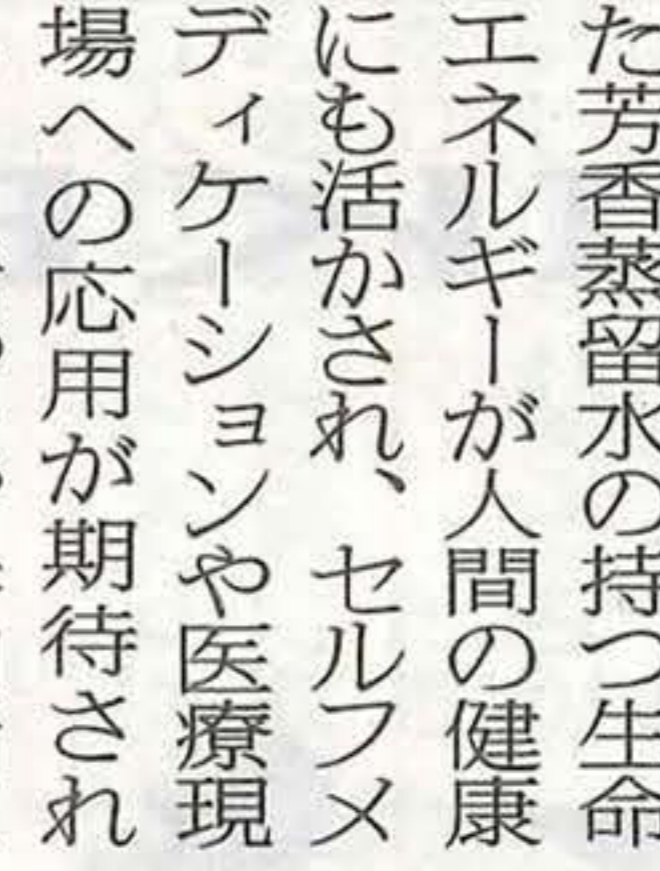 た芳香蒸留水の持つ生命
エネルギーが人間の健康
にも活かされ、セルフメ
ディケーションや医療現
場への応用が期待され